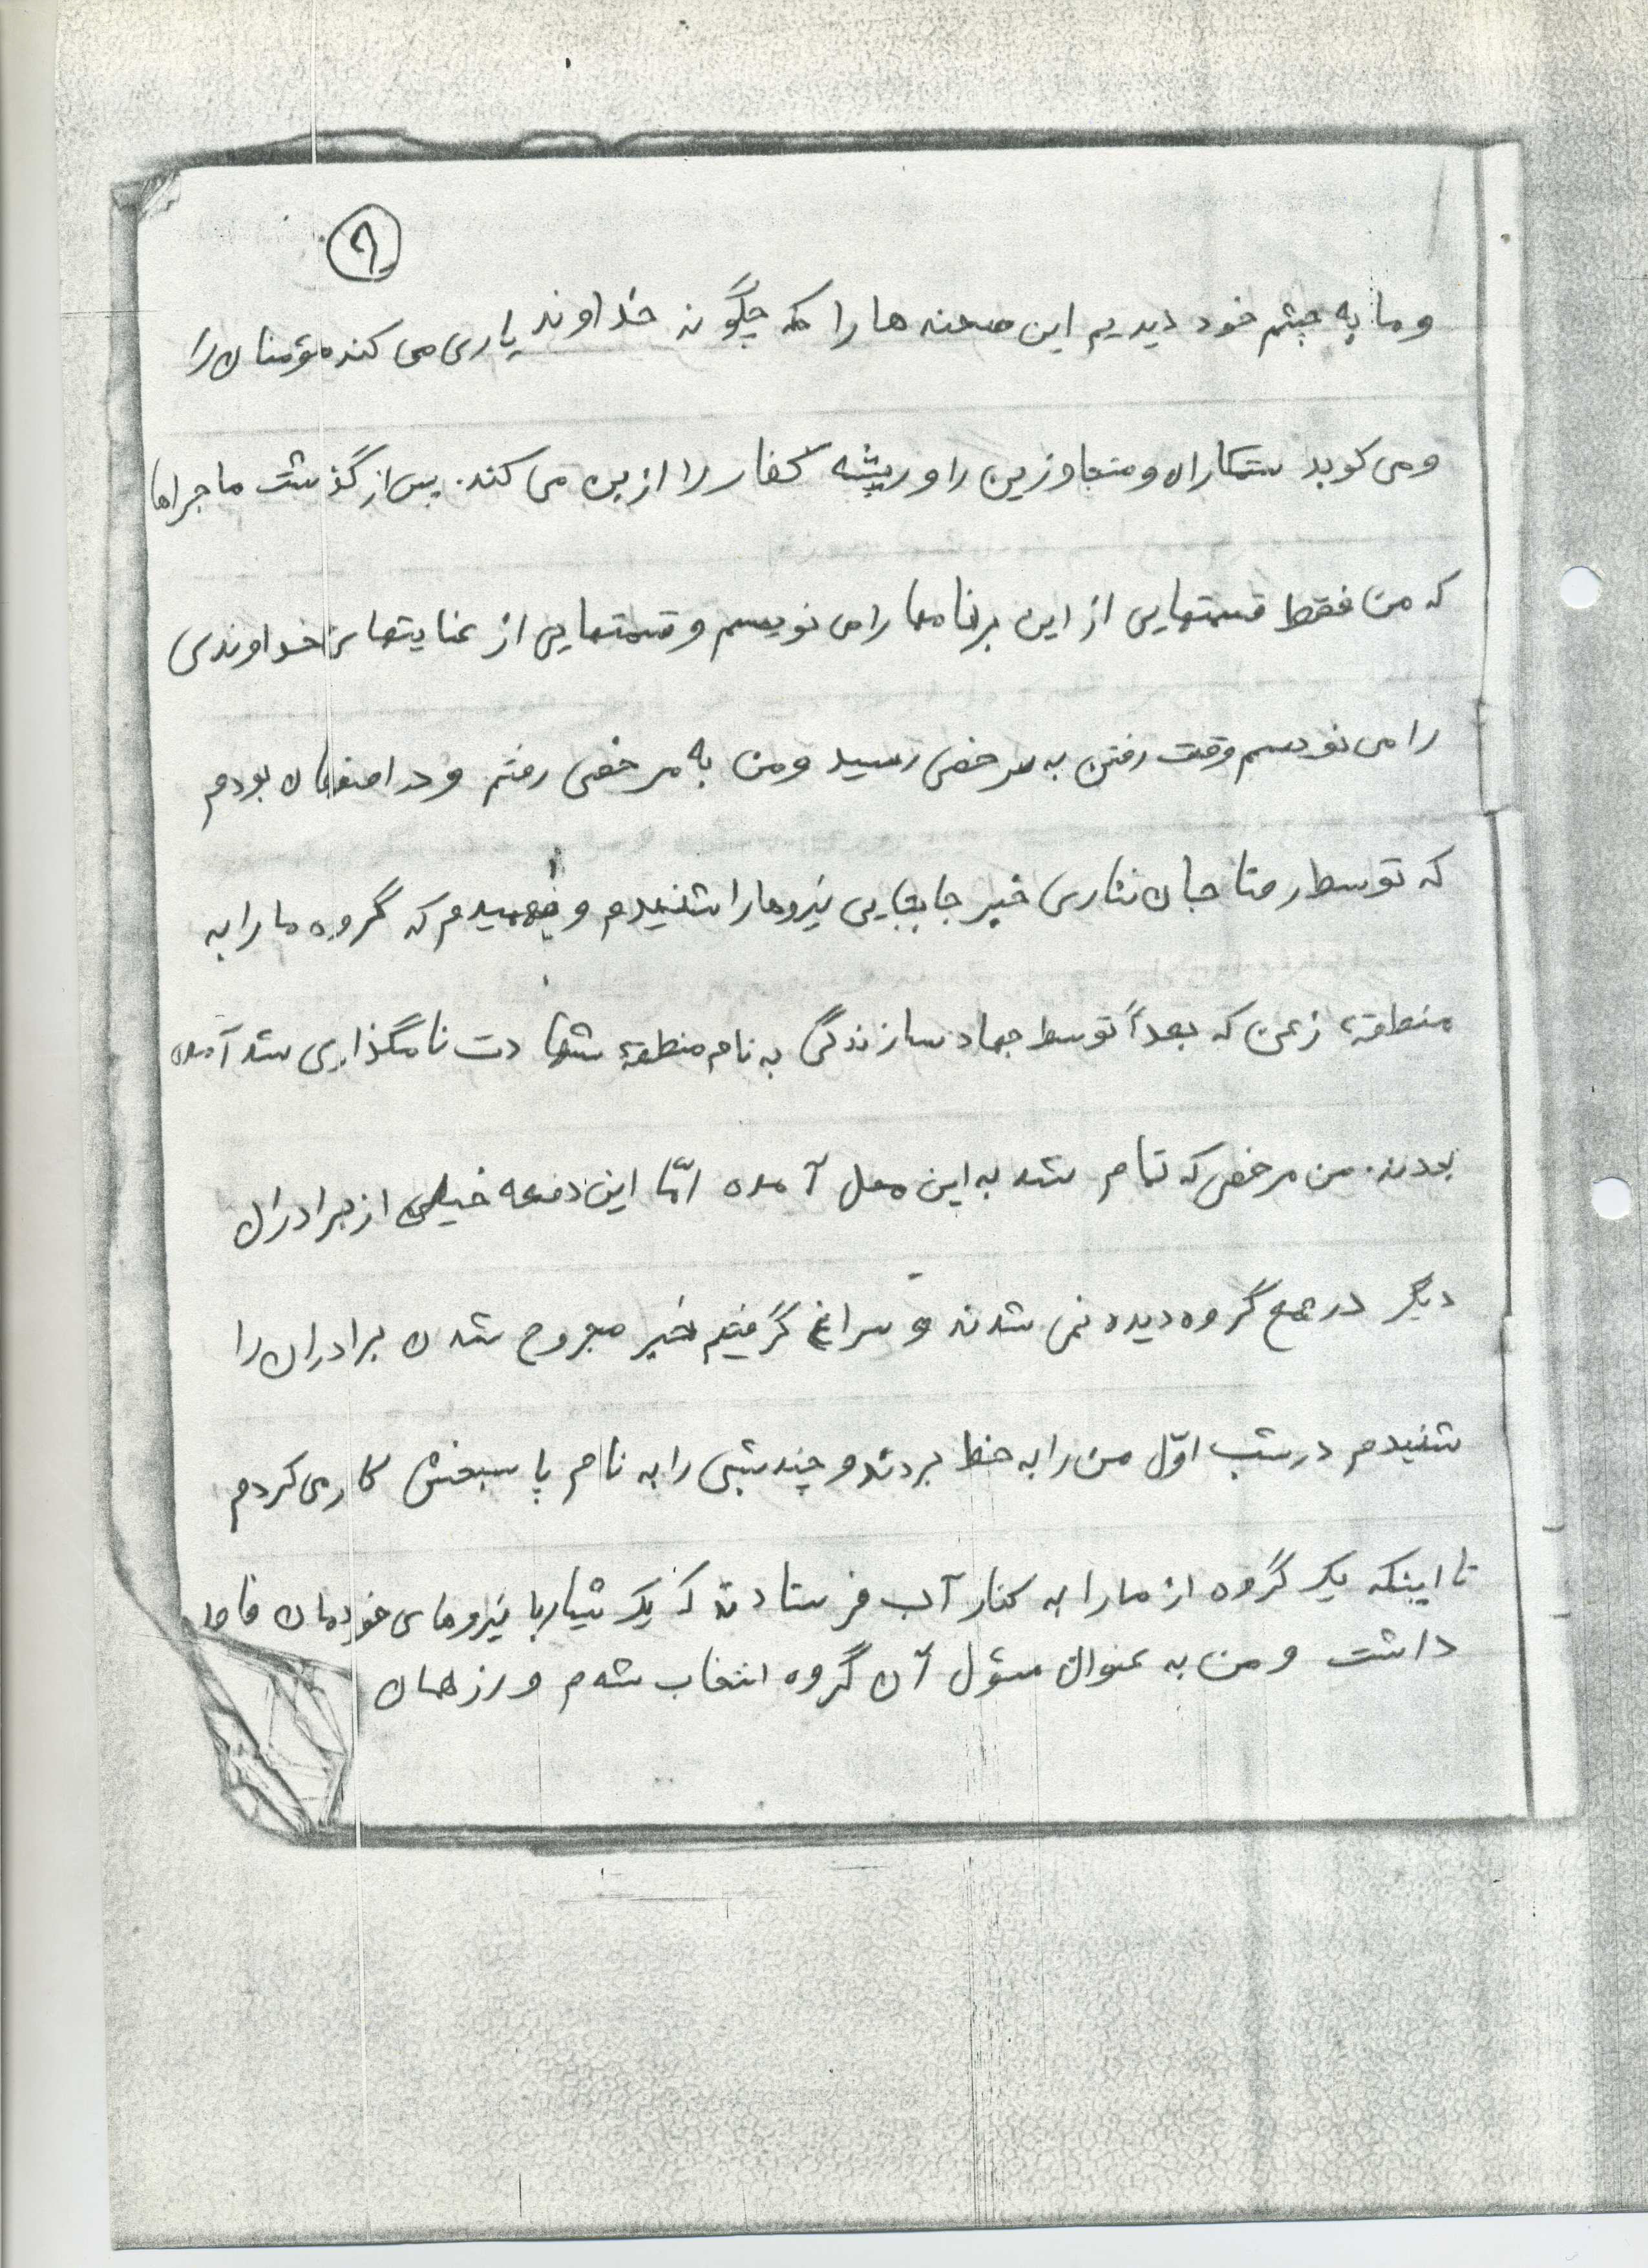 ۹
و ما به چشم خود دیدیم این صحنه ها را که چگونه خداوند یاری می کند مؤمنان را
و می کوبد ستمکاران و متجاوزین را و ریشه کفار را از بن می کند. پس از گذشت ماجراها
که من فقط قسمتهایی از این برنامها را می نویسم و قسمتهایی از عنایتهای خداوندی
را می نویسم وقت رفتن به مرخصی رسید و من به مرخصی رفتم و در اصفهان بودم
که توسط رضا جان نثاری خبر جابجایی نیروها را شنیدم و فهمیدم که گروه ما را به
منطقه زعن که بعداً توسط جهاد سازندگی به نام منطقه شهادت نامگذاری شد آمده
بودند. من مرخصی که تمام شد به این محل آمدم امّا این دفعه خیلی از برادران
دیگر در جمع گروه دیده نمی شدند و سراغ گرفتیم خبر مجروح شدن برادران را
شنیدم در شب اوّل من را به خط بردند و چند شبی را به نام پاسبخش کار می کردم
تا اینکه یک گروه از ما را به کنار آب فرستادند که یک شیار با نیروهای خودمان
داشت و من به عنوان مسؤل آن گروه انتخاب شدم و رز همان